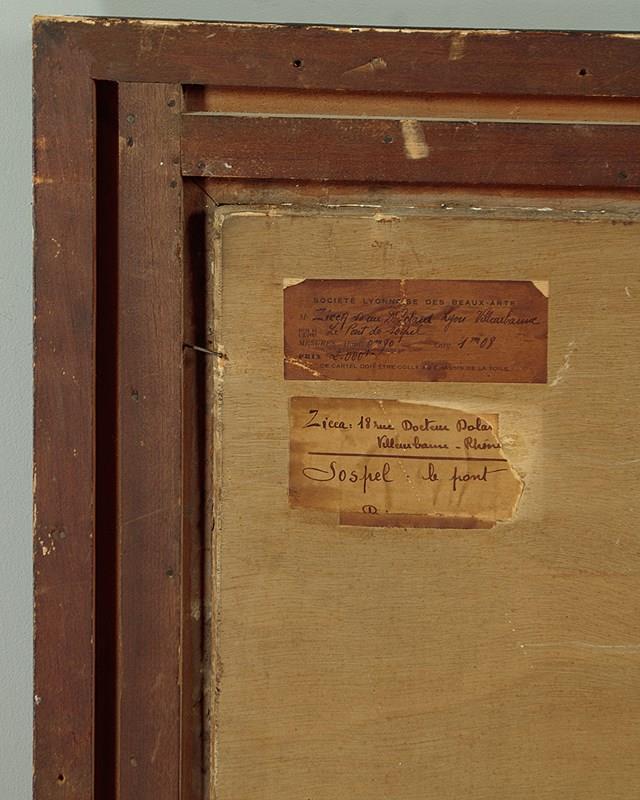 SOCIÉTÉ LYONNAISE DES BEAUX-ARTS
M. Zicca Lyon Villeurbanne
Le Pont de Sospel
MESURES Haut. 0m90 Larg. 1m08
PRIX 2.000f
CE CARTEL DOIT ÊTRE COLLÉ AU CHASSIS DE LA TOILE
Zicca: 18 rue Docteur Dolar
Villeurbanne - Rhône
Sospel: le pont